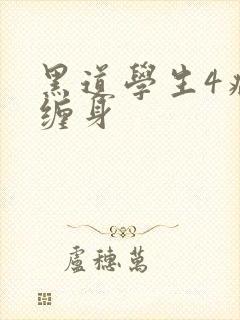 黑道學生4
缠身
盧穗萬